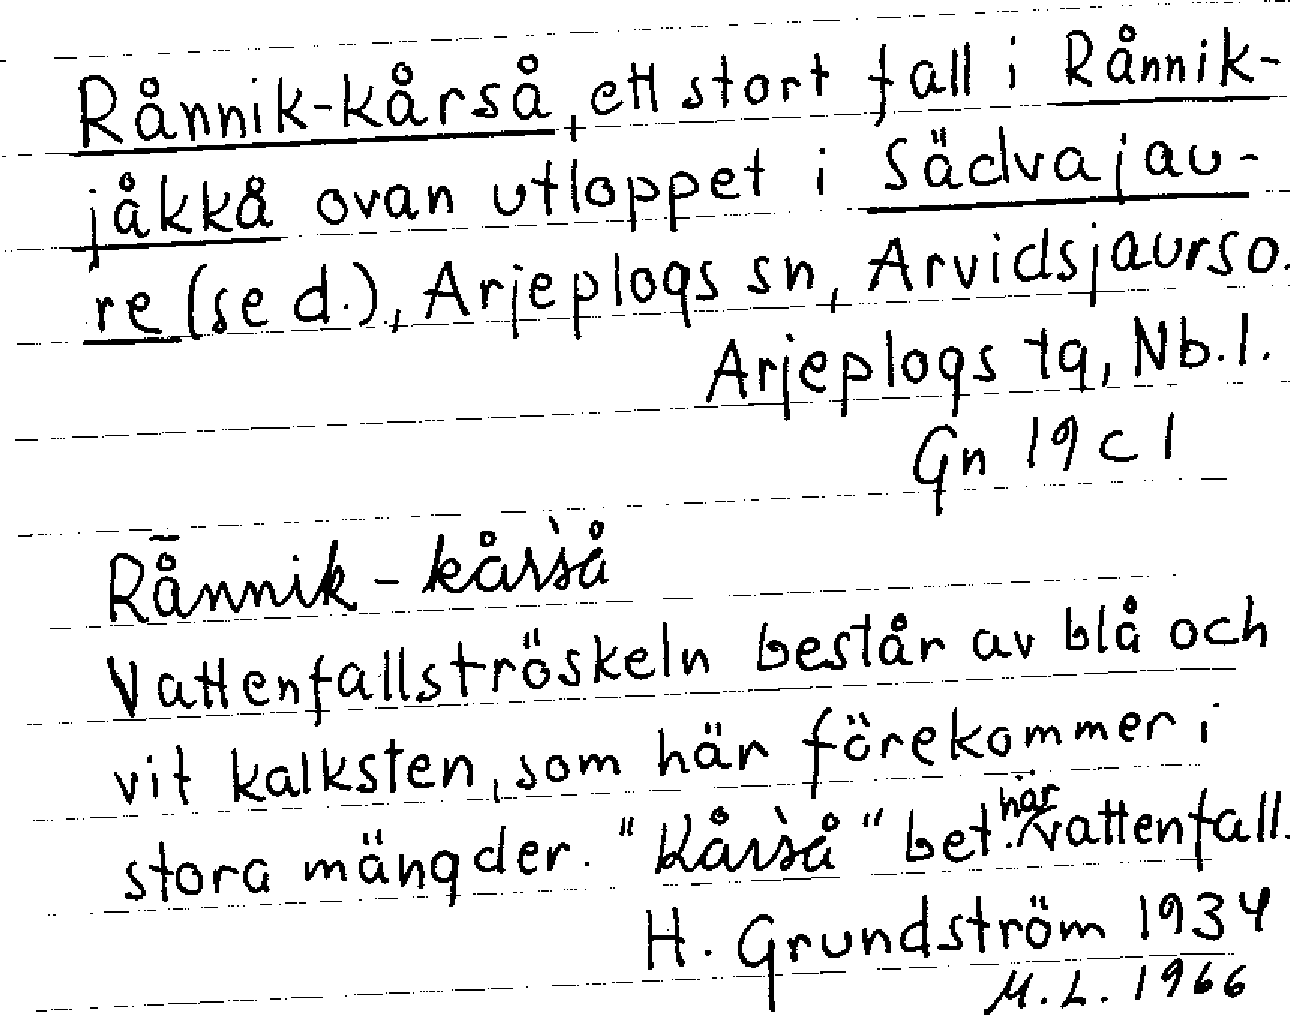 Rånnik-kårså, ett stort fall i Rånnik-
jåkkå ovan utloppet i Sädvajau-
re (se d.), Arjeplogs sn, Arvidsjaurs o.
Arjeplogs tg, Nb.l.
Gn 19 c 1
Rå̄nnik - kårs̀å
Vattenfallströskeln består av blå och
vit kalksten, som här förekommer i
stora mängder. "Kårs̀å" bet. här vattenfall.
H. Grundström 1934
M.L. 1966